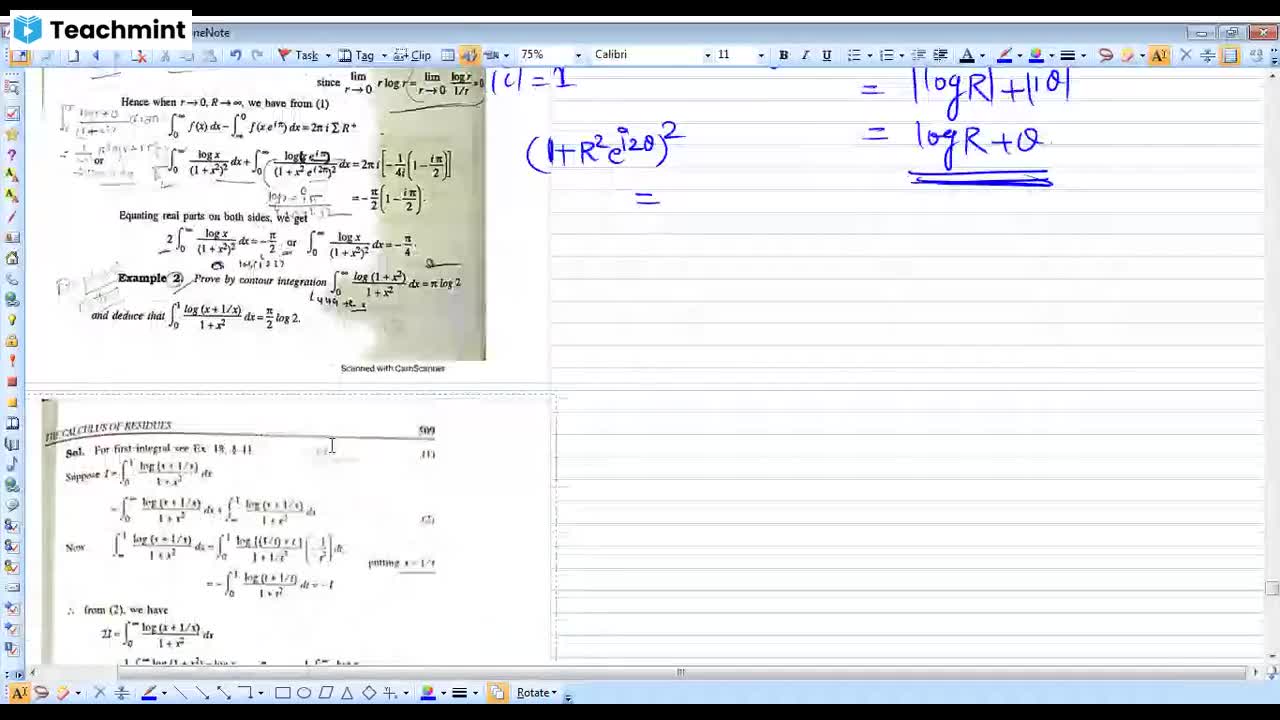 Teachmint
OneNote
Task Tag Clip 75% Calibri 11 B I U
since lim r→0 r log r = lim r→0 log r / 1/r = 0
Hence when r→0, R→∞, we have from (1)
∫₀^∞ f(x) dx − ∫_∞^0 f(x e^{iπ}) dx = 2π i Σ R⁺
or ∫₀^∞ log x / (1 + x²)² dx + ∫₀^∞ log(x e^{iπ}) / (1 + x² e^{i2π})² dx = 2π i [−1/4i (1 − iπ/2)]
= −π/2 (1 − iπ/2).
Equating real parts on both sides, we get
2 ∫₀^∞ log x / (1 + x²)² dx = −π/2 or ∫₀^∞ log x / (1 + x²)² dx = −π/4.
Example 2. Prove by contour integration ∫₀^∞ log (1 + x²) / 1 + x² dx = π log 2
and deduce that ∫₀^1 log (x + 1/x) / 1 + x² dx = π/2 log 2.
Scanned with CamScanner
|i| = 1
(1+R²e^{i2θ})²
=
= |log R| + |iθ|
= log R + θ
THE CALCULUS OF RESIDUES 509
Sol. For first integral see Ex.
Suppose I = ∫₀^1 log (x + 1/x) / 1 + x² dx (1)
= ∫₀^∞ log (x + 1/x) / 1 + x² dx + ∫_∞^1 log (x + 1/x) / 1 + x² dx (2)
Now ∫_∞^1 log (x + 1/x) / 1 + x² dx = ∫₀^1 log [(1/t) + t] / 1 + 1/t² (−1/t²) dt, putting x = 1/t
= −∫₀^1 log (t + 1/t) / 1 + t² dt = −I
∴ from (2), we have
2I = ∫₀^∞ log (x + 1/x) / 1 + x² dx
Rotate